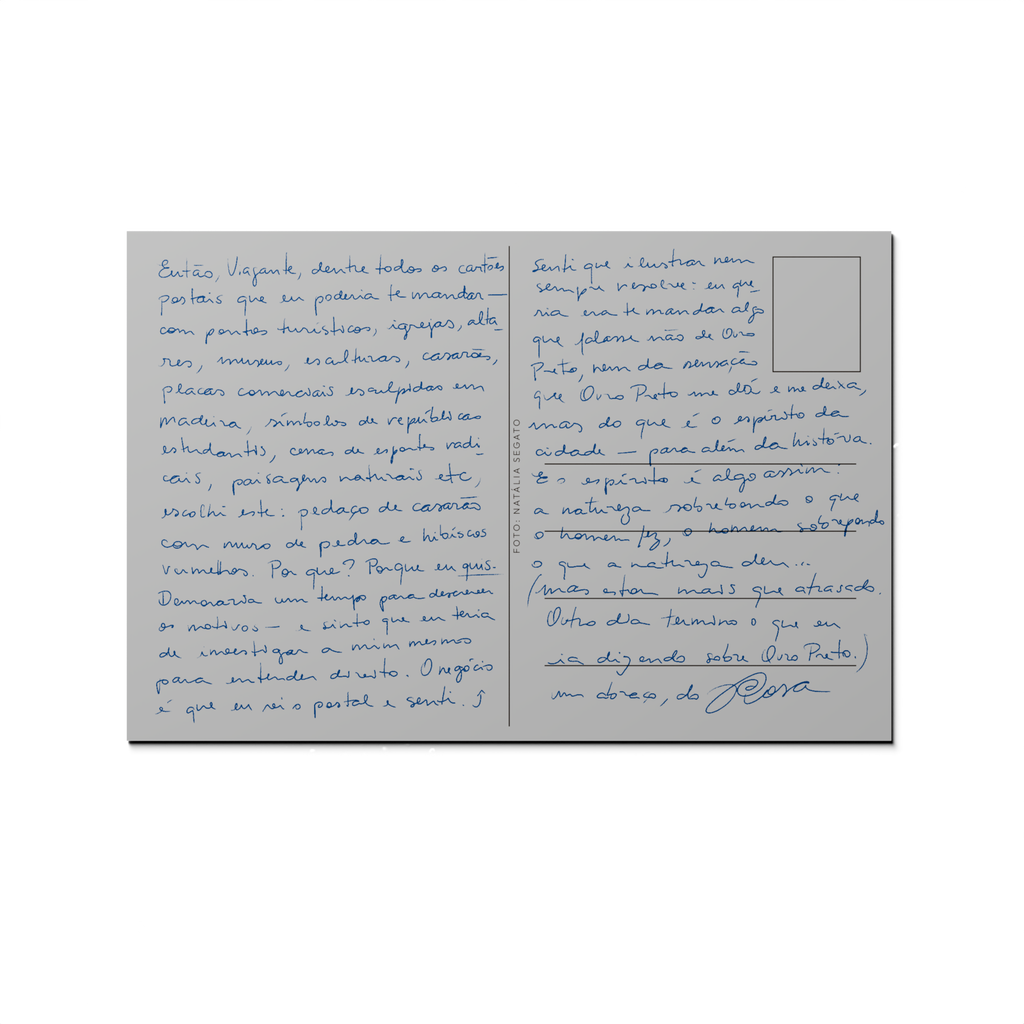 Então, Viajante, dentre todos os cartões
postais que eu poderia te mandar —
com pontos turísticos, igrejas, alta-
res, museus, esculturas, casarões,
placas comerciais esculpidas em
madeira, símbolos de repúblicas
estudantis, cenas de esportes radi-
cais, paisagens naturais etc,
escolhi este: pedaço de casarão
com muro de pedra e hibiscos
vermelhos. Por que? Porque eu quis.
Demoraria um tempo para descrever
os motivos — e sinto que eu teria
de investigar a mim mesmo
para entender direito. O negócio
é que eu vi o postal e senti.
FOTO: NATÁLIA SEGATO
Senti que ilustrar nem
sempre resolve: eu que-
ria era te mandar algo
que falasse não de Ouro
Preto, nem da sensação
que Ouro Preto me dá e me deixa,
mas do que é o espírito da
cidade — para além da história.
E o espírito é algo assim:
a natureza sobrebondo o que
o homem fez, o homem sobrepondo
o que a natureza deu...
(mas estou mais que atrasado.
Outro dia termino o que eu
ia dizendo sobre Ouro Preto.)
um abraço, do Rosa